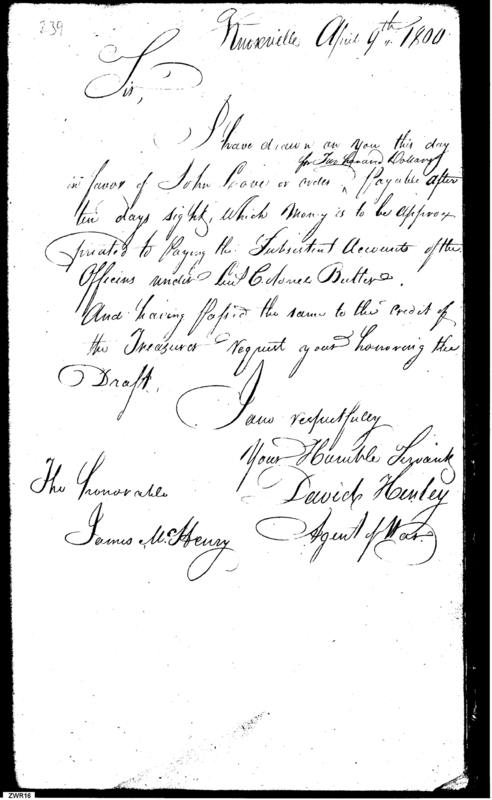 239
Knoxville April 9th 1800
Sir,
I have drawn on you this day
for Two thousand Dollars
in favor of John or order ^ Payable after
ten days sight, which Money is to be appro=
priated to Paying the Subsistent Accounts of the
Officers under Lieut Colonel Butler.
And having passed the same to the credit of
the Treasurer request your honoring the
Draft.
I am respectfully
Your Humble Servant
David Henley
Agent of War.
The Honorable
James McHenry
ZWR16